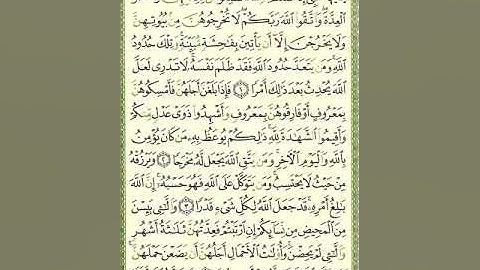 ٱلْعِدَّةَ وَٱتَّقُوا۟ ٱللَّهَ رَبَّكُمْ لَا تُخْرِجُوهُنَّ مِنۢ بُيُوتِهِنَّ
وَلَا يَخْرُجْنَ إِلَّآ أَن يَأْتِينَ بِفَٰحِشَةٍ مُّبَيِّنَةٍ وَتِلْكَ حُدُودُ
ٱللَّهِ وَمَن يَتَعَدَّ حُدُودَ ٱللَّهِ فَقَدْ ظَلَمَ نَفْسَهُۥ لَا تَدْرِى لَعَلَّ
ٱللَّهَ يُحْدِثُ بَعْدَ ذَٰلِكَ أَمْرًا ١ فَإِذَا بَلَغْنَ أَجَلَهُنَّ فَأَمْسِكُوهُنَّ
بِمَعْرُوفٍ أَوْ فَارِقُوهُنَّ بِمَعْرُوفٍ وَأَشْهِدُوا۟ ذَوَىْ عَدْلٍ مِّنكُمْ
وَأَقِيمُوا۟ ٱلشَّهَٰدَةَ لِلَّهِ ذَٰلِكُمْ يُوعَظُ بِهِۦ مَن كَانَ يُؤْمِنُ
بِٱللَّهِ وَٱلْيَوْمِ ٱلْءَاخِرِ وَمَن يَتَّقِ ٱللَّهَ يَجْعَل لَّهُۥ مَخْرَجًا ٢ وَيَرْزُقْهُ
مِنْ حَيْثُ لَا يَحْتَسِبُ وَمَن يَتَوَكَّلْ عَلَى ٱللَّهِ فَهُوَ حَسْبُهُۥٓ إِنَّ ٱللَّهَ
بَٰلِغُ أَمْرِهِۦ قَدْ جَعَلَ ٱللَّهُ لِكُلِّ شَىْءٍ قَدْرًا ٣ وَٱلَّٰٓـِٔى يَئِسْنَ
مِنَ ٱلْمَحِيضِ مِن نِّسَآئِكُمْ إِنِ ٱرْتَبْتُمْ فَعِدَّتُهُنَّ ثَلَٰثَةُ أَشْهُرٍ
وَٱلَّٰٓـِٔى لَمْ يَحِضْنَ وَأُو۟لَٰتُ ٱلْأَحْمَالِ أَجَلُهُنَّ أَن يَضَعْنَ حَمْلَهُنَّ